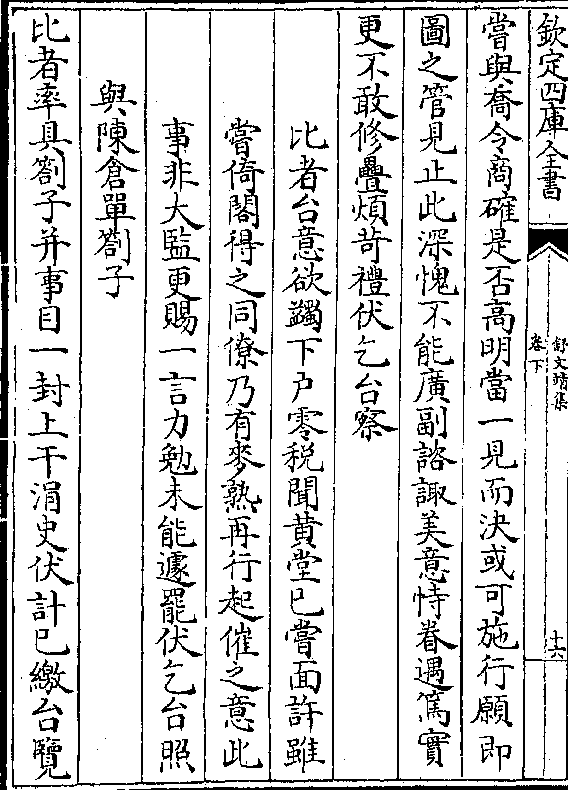 欽定四庫全書
舒文靖集
卷下
十六
嘗與喬令商確是否高明當一見而決或可施行願即
圖之管見止此深愧不能廣副諮諏美意恃眷遇篤實
更不敢修疊煩苛禮伏乞台察
比者台意欲蠲下户零稅聞黄堂已嘗面許雖
嘗倚閣得之同僚乃有麥熟再行起催之意此
事非大監更賜一言力勉未能遽罷伏乞台照
與陳倉單劄子
比者率具劄子并事目一封上干涓史伏計已繳台覽